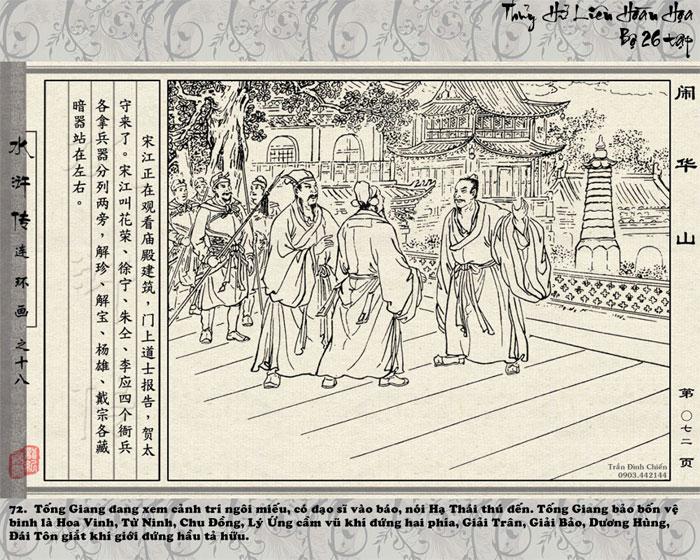 Thủy Hử Liên Hoàn Họa
Bộ 26 tập
闹华山
水浒传连环画之十八
宋江正在观看庙殿建筑，门上道士报告，贺太
守来了。宋江叫花荣、徐宁、朱仝、李应四个衙兵
各拿兵器分列两旁，解珍、解宝、杨雄、戴宗各藏
暗器站在左右。
第〇七二页
Trần Đình Chiến
0903.442144
72. Tống Giang đang xem cảnh trí ngôi miếu, có đạo sĩ vào báo, nói Hạ Thái thú đến. Tống Giang bảo bốn vệ
binh là Hoa Vinh, Từ Ninh, Chu Đồng, Lý Ứng cầm vũ khí đứng hai phía, Giải Trân, Giải Bảo, Dương Hùng,
Đái Tôn giắt khí giới đứng hầu tả hữu.